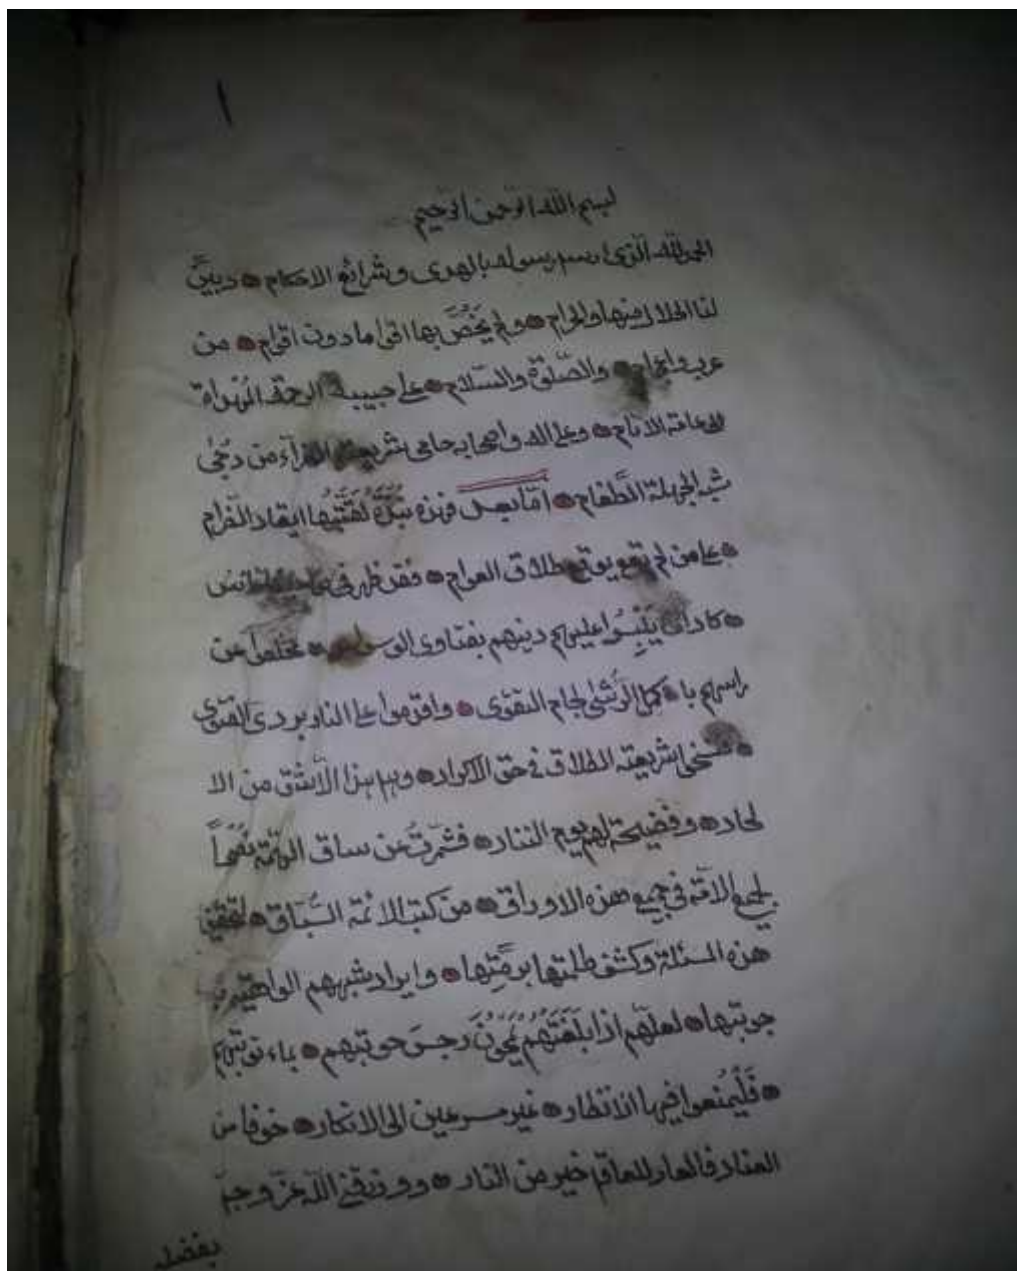 ١
بسم الله الرحمن الرحيم
الحمد لله الذي ارسل رسوله بالهدى وشرائع الاحكام وبيّن
لنا الحلال منها والحرام ولم يَخُصَّ بها اقواما دون اقوام من
عرب واعجام والصّلوة والسّلام على حبيبه الرحمة المُهداة
الى عامة الانام وعلى اله واصحابه حامى شريعته الغرآء من دُجٰى
شبه الجهلة الطَّغام امّا بعد فهذه نبذة لفّقتُها ايقادا لضّرام
على من لم يقع طلاق العوام فقد ظهر فى
كادوا يَلبِسُوا عليهم دينهم بفتاوى الوسواس فخلعوا عن
راسهم با كل الرُشٰى لجام التقوى واقدموا على النار بردى الفتوى
شريعته الطلاق فى حق الاكراد وهل هذا الّا شق من الا
لحاد وفضيحة لهم يوم التناد فشمّرتُ عن ساق الهمّة نُصْحاً
لجميع الامّة فى جمع هذه الاوراق من كتب الائمة السُّبّاق لتحقيق
هذه المسئلة وكشف ظلمتها برمّتِها وايراد شبههم الواهية
جوبتها لعلّهم اذا بلَغَتْهُم يَمحُونَ رجسَ حوبتهم بماء توبتهم
فَلْيُمنعوا فيها الانظار غير مسرعين الى الانكار خوفا من
العناد فالعار للعاقل خير من النار ووفقنى اللّه عزّ وجلّ
بفضله